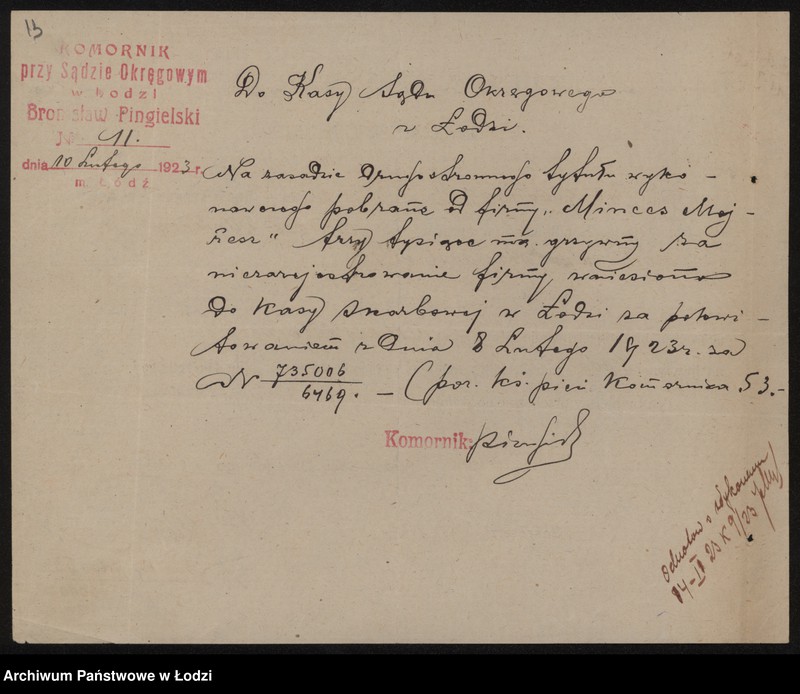 13
KOMORNIK
przy Sądzie Okręgowym
w Łodzi
Bronisław Pingielski
№ 11.
dnia 10 Lutego 1923 r.
m. Łódź
Do Kasy Sądu Okręgowego
w Łodzi.
Na zasadzie drugostronnego tytułu wyko-
nawczego pobrane od firmy „Minces Moj-
żesz" trzy tysiące mk. grzywny za
niezarejestrowanie firmy wniesiono
do kasy skarbowej w Łodzi za pokwi-
towaniem z dnia 8 Lutego 1923 r. za
№ 735006
6469. — (por. ks. pien Komornika 53.-
Komornik:
14-II 23 K 9/23
Archiwum Państwowe w Łodzi